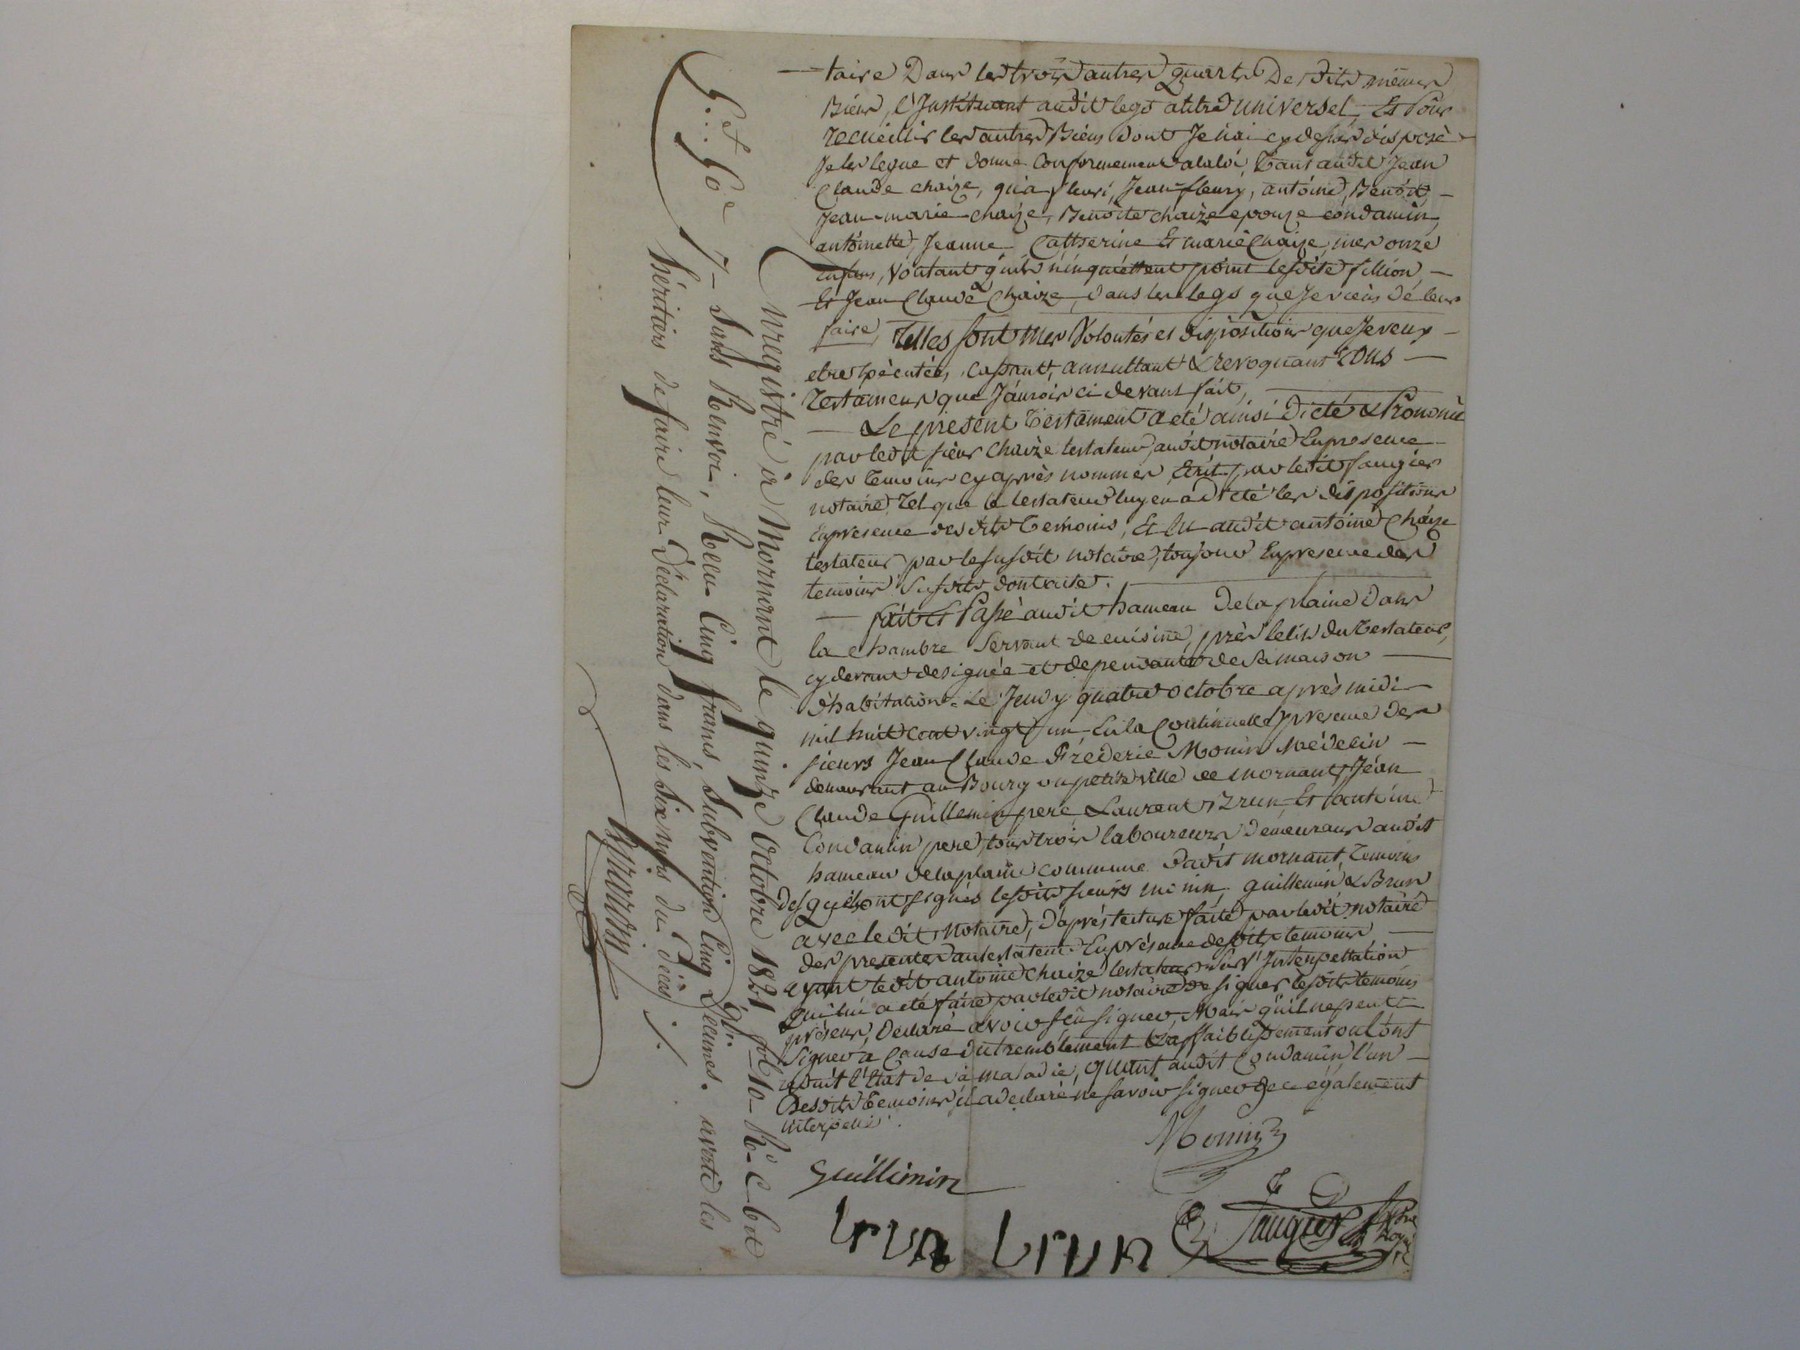 taire Dans les trois autres quarts Desdits mêmes
Biens, l'Instituant audit legs atitre universel, Et Pour
recueillir les autres Biens dont Je n'ai cy dessus disposé
Je les legue et donne Conformement alaloi, Tant audit Jean
Claude chaize, qu'a fleuri, Jean fleury, antoine, Benoit
Jean-marie chaize, Benoite chaize epouze condamin,
antoinette, Jeanne Catherine Et marie Chaize, mes onze
Enfans, voulant qu'ils n'inquiettent point lesdits fillion
Et Jean Claude Chaize, dans les legs que Je viens de leur
faire, Telles sont mes Volontés et dispositions que Je veux
etre Exécutées, cassant, annullant & revoquant Tous
Testamens que J'aurois ci devant fait,
Le présent Testament a eté ainsi dicté & Prononcé
par ledit sieur Chaize testateur, audit notaire En presence
des temoins cy après nommés, Ecrit par ledit faugier
notaire, Tel que le testateur luy en a dicté les dispositions
En presence desdits Temoins, Et lu audit antoine Chaize
testateur par le susdit notaire, toujours En presence des
temoins susdits dont acte.
fait Et Passé audit hameau De la plaine Dans
la chambre Servant de cuisine, près le lit du Testateur,
cy devant designée et dependante de sa maison
d'habitation. Le Jeudy quatre octobre après midi
mil huit cent vingt un En la Continuelle presence des
sieurs Jean Claude Fréderic Monin Médecin
demeurant au Bourg ou petite ville de mornant, Jean
Claude Guillemin pere, Laurent Brun Et antoine
Condamin pere, tous trois laboureurs Demeurans audit
hameau de la plaine commune dudit mornant, Temoins
desquels ont signés lesdits sieurs monin, guillemin & Brun
avec ledit notaire, D'après lecture faite par ledit notaire
des presentes au testateur En présence desdits temoins
ayant ledit antoine chaize testateur sur l'Interpellation
qui lui a eté faite par ledit notaire de signer lesdits temoins
présens, Declaré avoir sçu signer Mais qu'il ne peut
signer a Cause du tremblement & affaiblissement ou l'ont
reduit l'Etat de sa maladie, quant audit Condamin l'un
Desdits temoins il a declaré ne savoir signer de ce également
interpellé.
Monin
Guillimin
brun brun
faugier
Enregistré à Mornant le quinze Octobre 1821 fol 10 Ro C
et 50 7 Sans Renvoi, Reçu Cinq francs, Subvention Cinq Décimes. averti les
héritiers de faire leur Déclaration dans les six mois du Décès